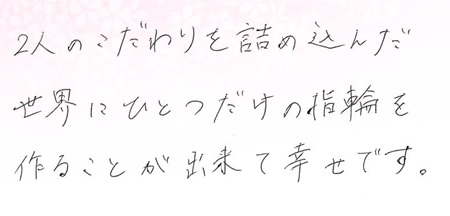 2人のこだわりを詰め込んだ
世界にひとつだけの指輪を
作ることが出来て幸せです。